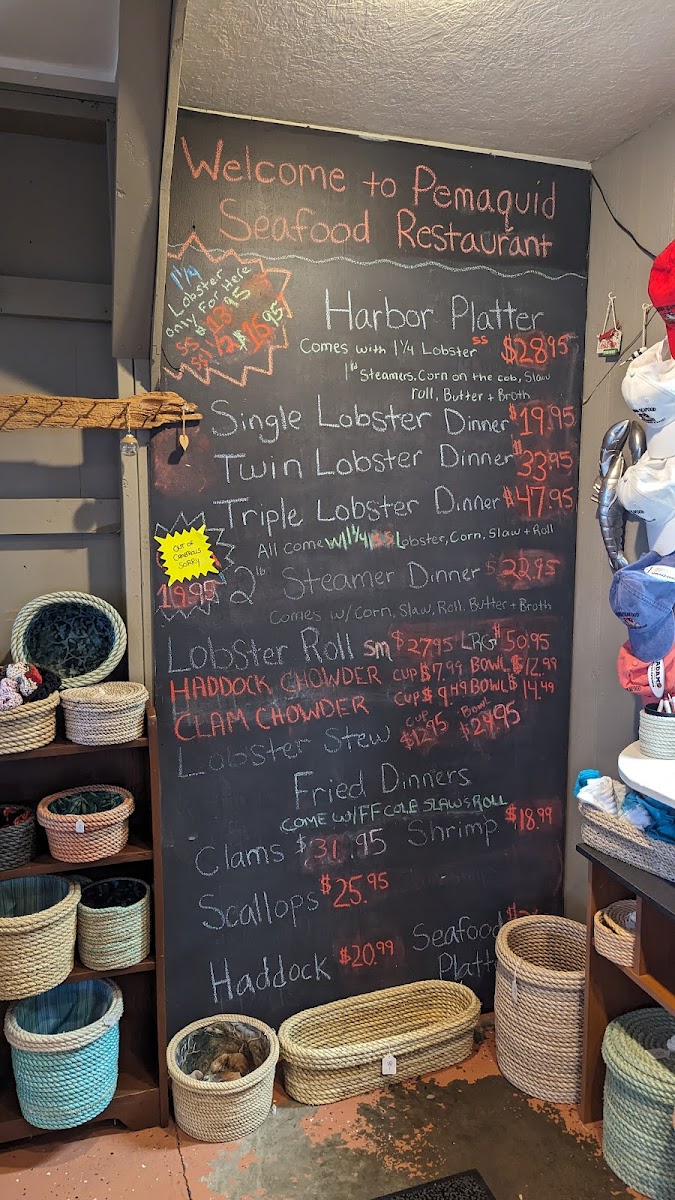 Welcome to Pemaquid
Seafood Restaurant
1¼
Lobster
only For Here
SS $13.95
$15.95
Harbor Platter
Comes with 1¼ Lobster SS $28.95
1lb Steamers, Corn on the cob, Slaw
roll, Butter + Broth
Single Lobster Dinner $19.95
Twin Lobster Dinner $33.95
Triple Lobster Dinner $47.95
All come w/1¼ SS Lobster, Corn, Slaw + Roll
OUT OF
SORRY
19.95
2lb Steamer Dinner $22.95
Comes w/ Corn, Slaw, Roll, Butter + Broth
Lobster Roll SM $27.95 LRG $50.95
HADDOCK CHOWDER CUP $7.99 BOWL $12.99
CLAM CHOWDER CUP $9.49 BOWL $14.49
Lobster Stew CUP $12.95 Bowl $24.95
Fried Dinners
COME W/FF COLE SLAW & ROLL
Clams $31.95 Shrimp $18.99
Scallops $25.95
Haddock $20.99 Seafood
Platt